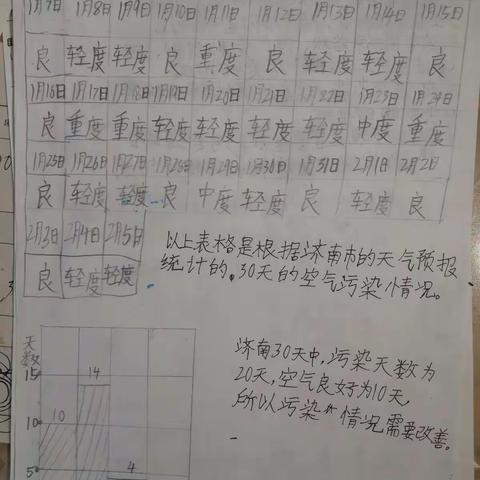 1月7日 1月8日 1月9日 1月10日 1月11日 1月12日 1月13日 1月14日 1月15日
良 轻度 轻度 良 重度 良 轻度 轻度 良
1月16日 1月17日 1月18日 1月19日 1月20日 1月21日 1月22日 1月23日 1月24日
良 重度 重度 轻度 轻度 轻度 轻度 中度 重度
1月25日 1月26日 1月27日 1月28日 1月29日 1月30日 1月31日 2月1日 2月2日
良 轻度 轻度 良 中度 轻度 良 轻度 良
2月3日 2月4日 2月5日
良 轻度 轻度
以上表格是根据济南市的天气预报
统计的.30天的空气污染情况。
天数
15
14
10
10
5
4
济南30天中,污染天数为
20天,空气良好为10天,
所以污染情况需要改善。